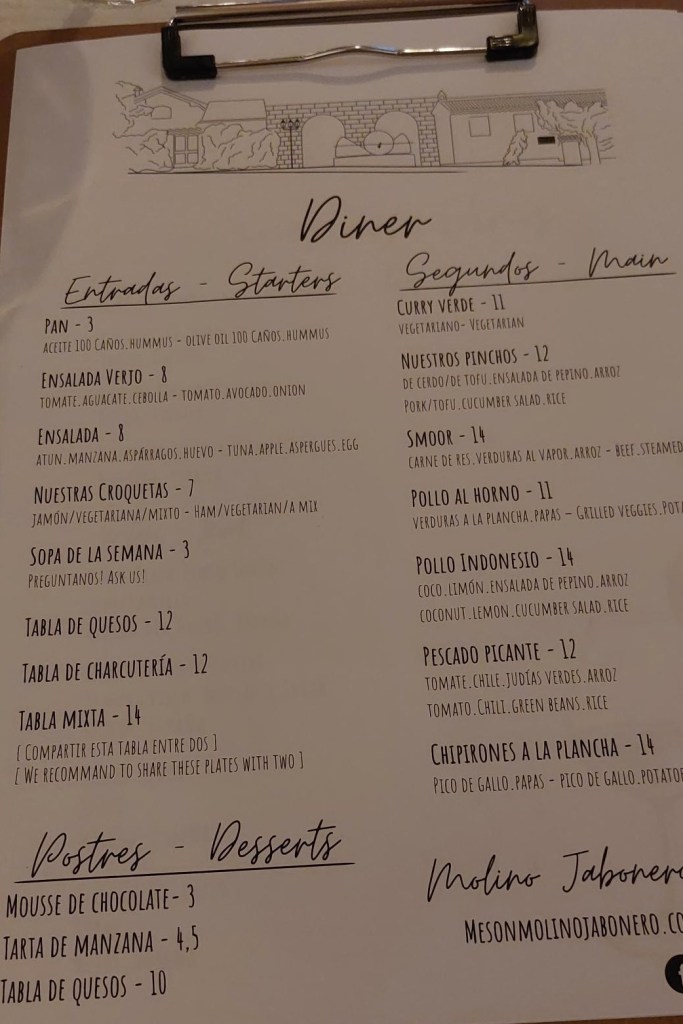 Diner
Entradas - Starters
Pan - 3
aceite 100 Caños.hummus - olive oil 100 Caños.hummus
Ensalada Verjo - 8
tomate.aguacate.cebolla - tomato.avocado.onion
Ensalada - 8
atun.manzana.aspárragos.huevo - tuna.apple.aspergues.egg
Nuestras Croquetas - 7
jamón/vegetariana/mixto - ham/vegetarian/a mix
Sopa de la semana - 3
Preguntanos! Ask us!
Tabla de quesos - 12
Tabla de charcutería - 12
Tabla mixta - 14
[ Compartir esta tabla entre dos ]
[ We recommand to share these plates with two ]
Postres - Desserts
Mousse de chocolate- 3
Tarta de manzana - 4,5
Tabla de quesos - 10
Segundos - Main
Curry verde - 11
vegetariano- Vegetarian
Nuestros pinchos - 12
de cerdo/de tofu.ensalada de pepino.arroz
Pork/tofu.cucumber salad.rice
Smoor - 14
carne de res.verduras al vapor.arroz - Beef.steamed
Pollo al horno - 11
verduras a la plancha.papas – Grilled veggies.Pota
Pollo Indonesio - 14
coco.limón.ensalada de pepino.arroz
coconut.lemon.cucumber salad.rice
Pescado picante - 12
tomate.chile.judías verdes.arroz
tomato.Chili.green beans.rice
Chipirones a la plancha - 14
Pico de gallo.papas - pico de gallo.potatoe
Molino Jabonero
Mesonmolinojabonero.co